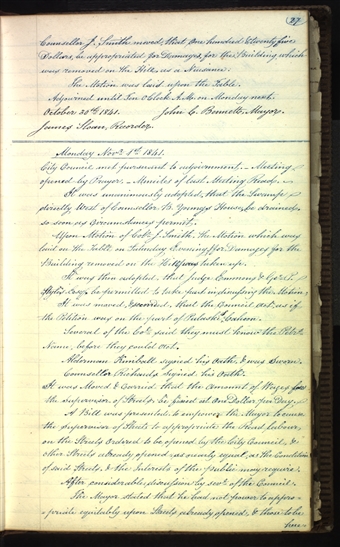 27
Councellor J. Smith moved, that one hundred & twenty five
Dollars, be appropriated for Damages, for the Building which
was removed on the Hill, as a Nuisance.
The Motion was laid upon the Table.
Adjourned until Ten O'Clock A.M. on Monday next.
October 30th 1841. John C. Bennett, Mayor.
James Sloan, Recorder.
Monday Novr. 1st 1841.
City Council met pursuant to adjournment. Meeting
opened by Prayer. Minutes of last Meeting Read.
It was unanimously adopted, that the Swamp
directly West of Councellor B. Young's House, be drained,
so soon as Circumstances permit.
Upon Motion of J. Smith, the Motion which was
laid on the Table on Saturday Evening, for Damages for the
Building removed on the Hill, was taken up.
It was then adopted, that Judge Emmons & Geo. P.
Stiles Esqr. be permitted to take part in discussing the Motion.
It was moved, & seconded, that the Council act, as if
the Petition was on the part of Pulaski Cahoon.
Several of the said they must know the
Name, before they could act.
Alderman Kimball signed his Oath, & was Sworn.
Councellor Richards signed his Oath.
It was Moved & Carried, that the amount of Wages for
the Supervisor of Streets, be fixed at One Dollar per Day.
A Bill was presented, to empower the Mayor to cause
the Supervisor of Streets to appropriate the Road labour,
on the Streets Ordered to be opened by the City Council, &
other Streets already opened, as nearly equal, as the Condition
of said Streets, & the Interests of the public may require.
After considerable discussion by sevl. of the Council
The Mayor stated that he had not power to appro-
-priate equitably upon Streets already opened, & those to be